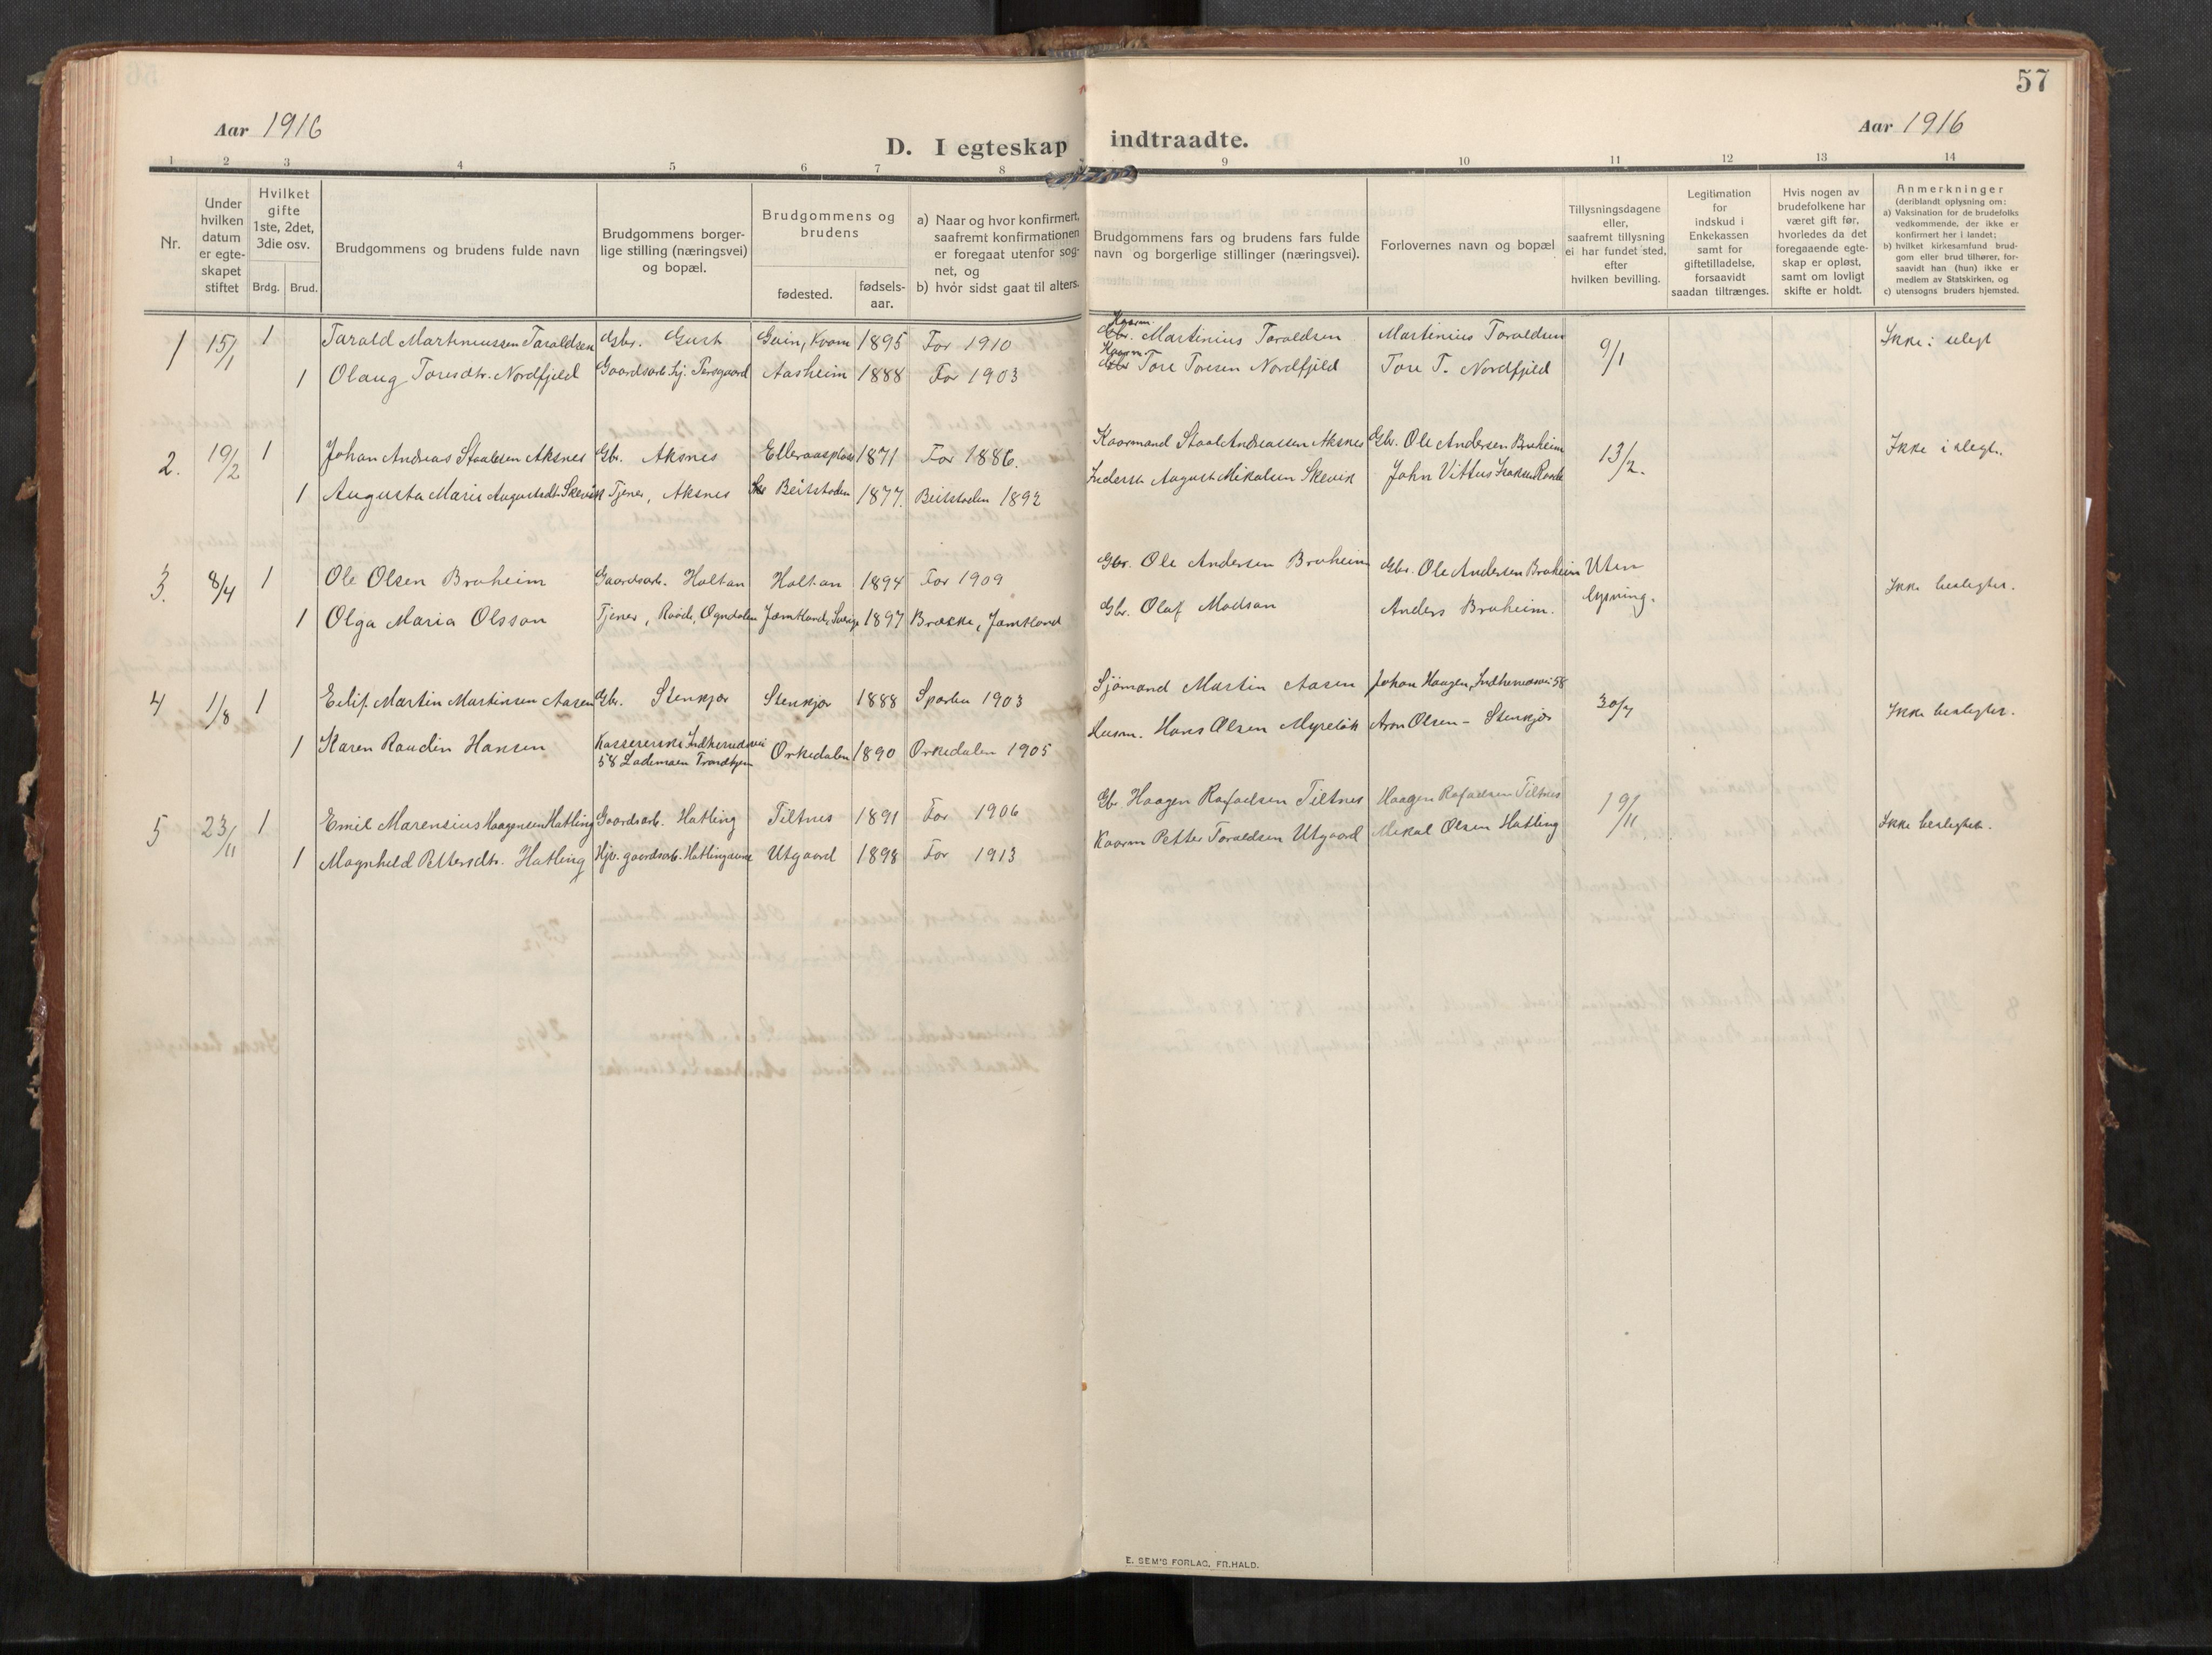 57
Aar 1916
Aar 1916
D. I egteskap indtraadte.
1 2 3 4 5 6 7 8 9 10 11 12 13 14
Nr.
Under hvilken datum er egte-skapet stiftet
Hvilket gifte 1ste, 2det, 3die osv.
Brdg. Brud.
Brudgommens og brudens fulde navn
Brudgommens borger-lige stilling (næringsvei) og bopæl.
Brudgommens og brudens
fødested.
fødsels-aar.
a) Naar og hvor konfirmert, saafremt konfirmationen er foregaat utenfor sog-net, og
b) hvor sidst gaat til alters.
Brudgommens fars og brudens fars fulde navn og borgerlige stillinger (næringsvei).
Forlovernes navn og bopæl
Tillysningsdagene eller, saafremt tillysning ei har fundet sted, efter hvilken bevilling.
Legitimation for indskud i Enkekassen samt for giftetilladelse, forsaavidt saadan tiltrænges.
Hvis nogen av brudefolkene har været gift før, hvorledes da det foregaaende egte-skap er opløst, samt om lovligt skifte er holdt.
Anmerkninger (deriblandt oplysning om:
a) Vaksination for de brudefolks vedkommende, der ikke er konfirmert her i landet;
b) hvilket kirkesamfund brud-gom eller brud tilhører, for-saavidt han (hun) ikke er medlem av Statskirken, og
c) utensogns bruders hjemsted.
1 15/1 1 Tarald Martiniussen Taraldsen Gbr. Gust Guin, Kvam 1895 For 1910 Kaarm. Gbr. Martinius Taraldsen Martinius Taraldsen 9/1 Ikke i slegt
1 Olaug Toresdtr. Nordfjeld Gaardsarb. hj. Torsgaard Aasheim 1888 For 1903 Kaarm. Gbr Tore Toresen Nordfjeld Tore T. Nordfjeld
2. 19/2 1 Johan Andreas Staalesen Aksnes Gbr. Aksnes Elleraasplads 1871 For 1886. Kaarmand Staal Andreassen Aksnes Gbr. Ole Andersen Bruheim 13/2. Ikke i slegt.
1 Augusta Marie Augustsdtr. Skevik Tjener, Aksnes Beitstaden 1877. Beitstaden 1892 Inderst August Mikalsen Skevik John Vittus Isaksen Raade
3. 8/4 1 Ole Olsen Bruheim Gaardsarb. Holtan Holtan 1894 For 1909 Gbr. Ole Andersen Bruheim Gbr. Ole Andersen Bruheim Uten lysning. Ikke beslegtet.
1 Olga Maria Olsson Tjener, Raade, Ogndalen Jamtland, Sverige 1897 Bräcke, Jamtland Gbr. Olaf Madsan Anders Bruheim.
4 1/8 1 Eilif Martin Martinsen Aasen Gbr. Stenkjær Stenkjær 1888 Sparbu 1903 Sjömand Martin Aasen Johan Haugen, Indherredsvei 58 30/7 Ikke beslegtet.
1 Karen Raudin Hansen Kassererske Indherredsvei 58 Lademoen Trondhjem Orkedalen 1890 Orkedalen 1905 Husm. Hans Olsen Myreløk Aron Olsen - Stenkjær
5 23/11 1 Emil Marensius Haagensen Hatling Gaardsarb. Hatling Tiltnes 1891 For 1906 Gbr. Haagen Rafaelsen Tiltnes Haagen Rafaelsen Tiltnes 19/11 Ikke beslegtet.
1 Magnhild Pettersdtr. Hatling Hjv. gaardsarb. Hatlingaune Utgaard 1898 For 1913 Kaarm Petter Taraldsen Utgaard Mikal Olsen Hatling
E. SEM'S FORLAG, FR.HALD.